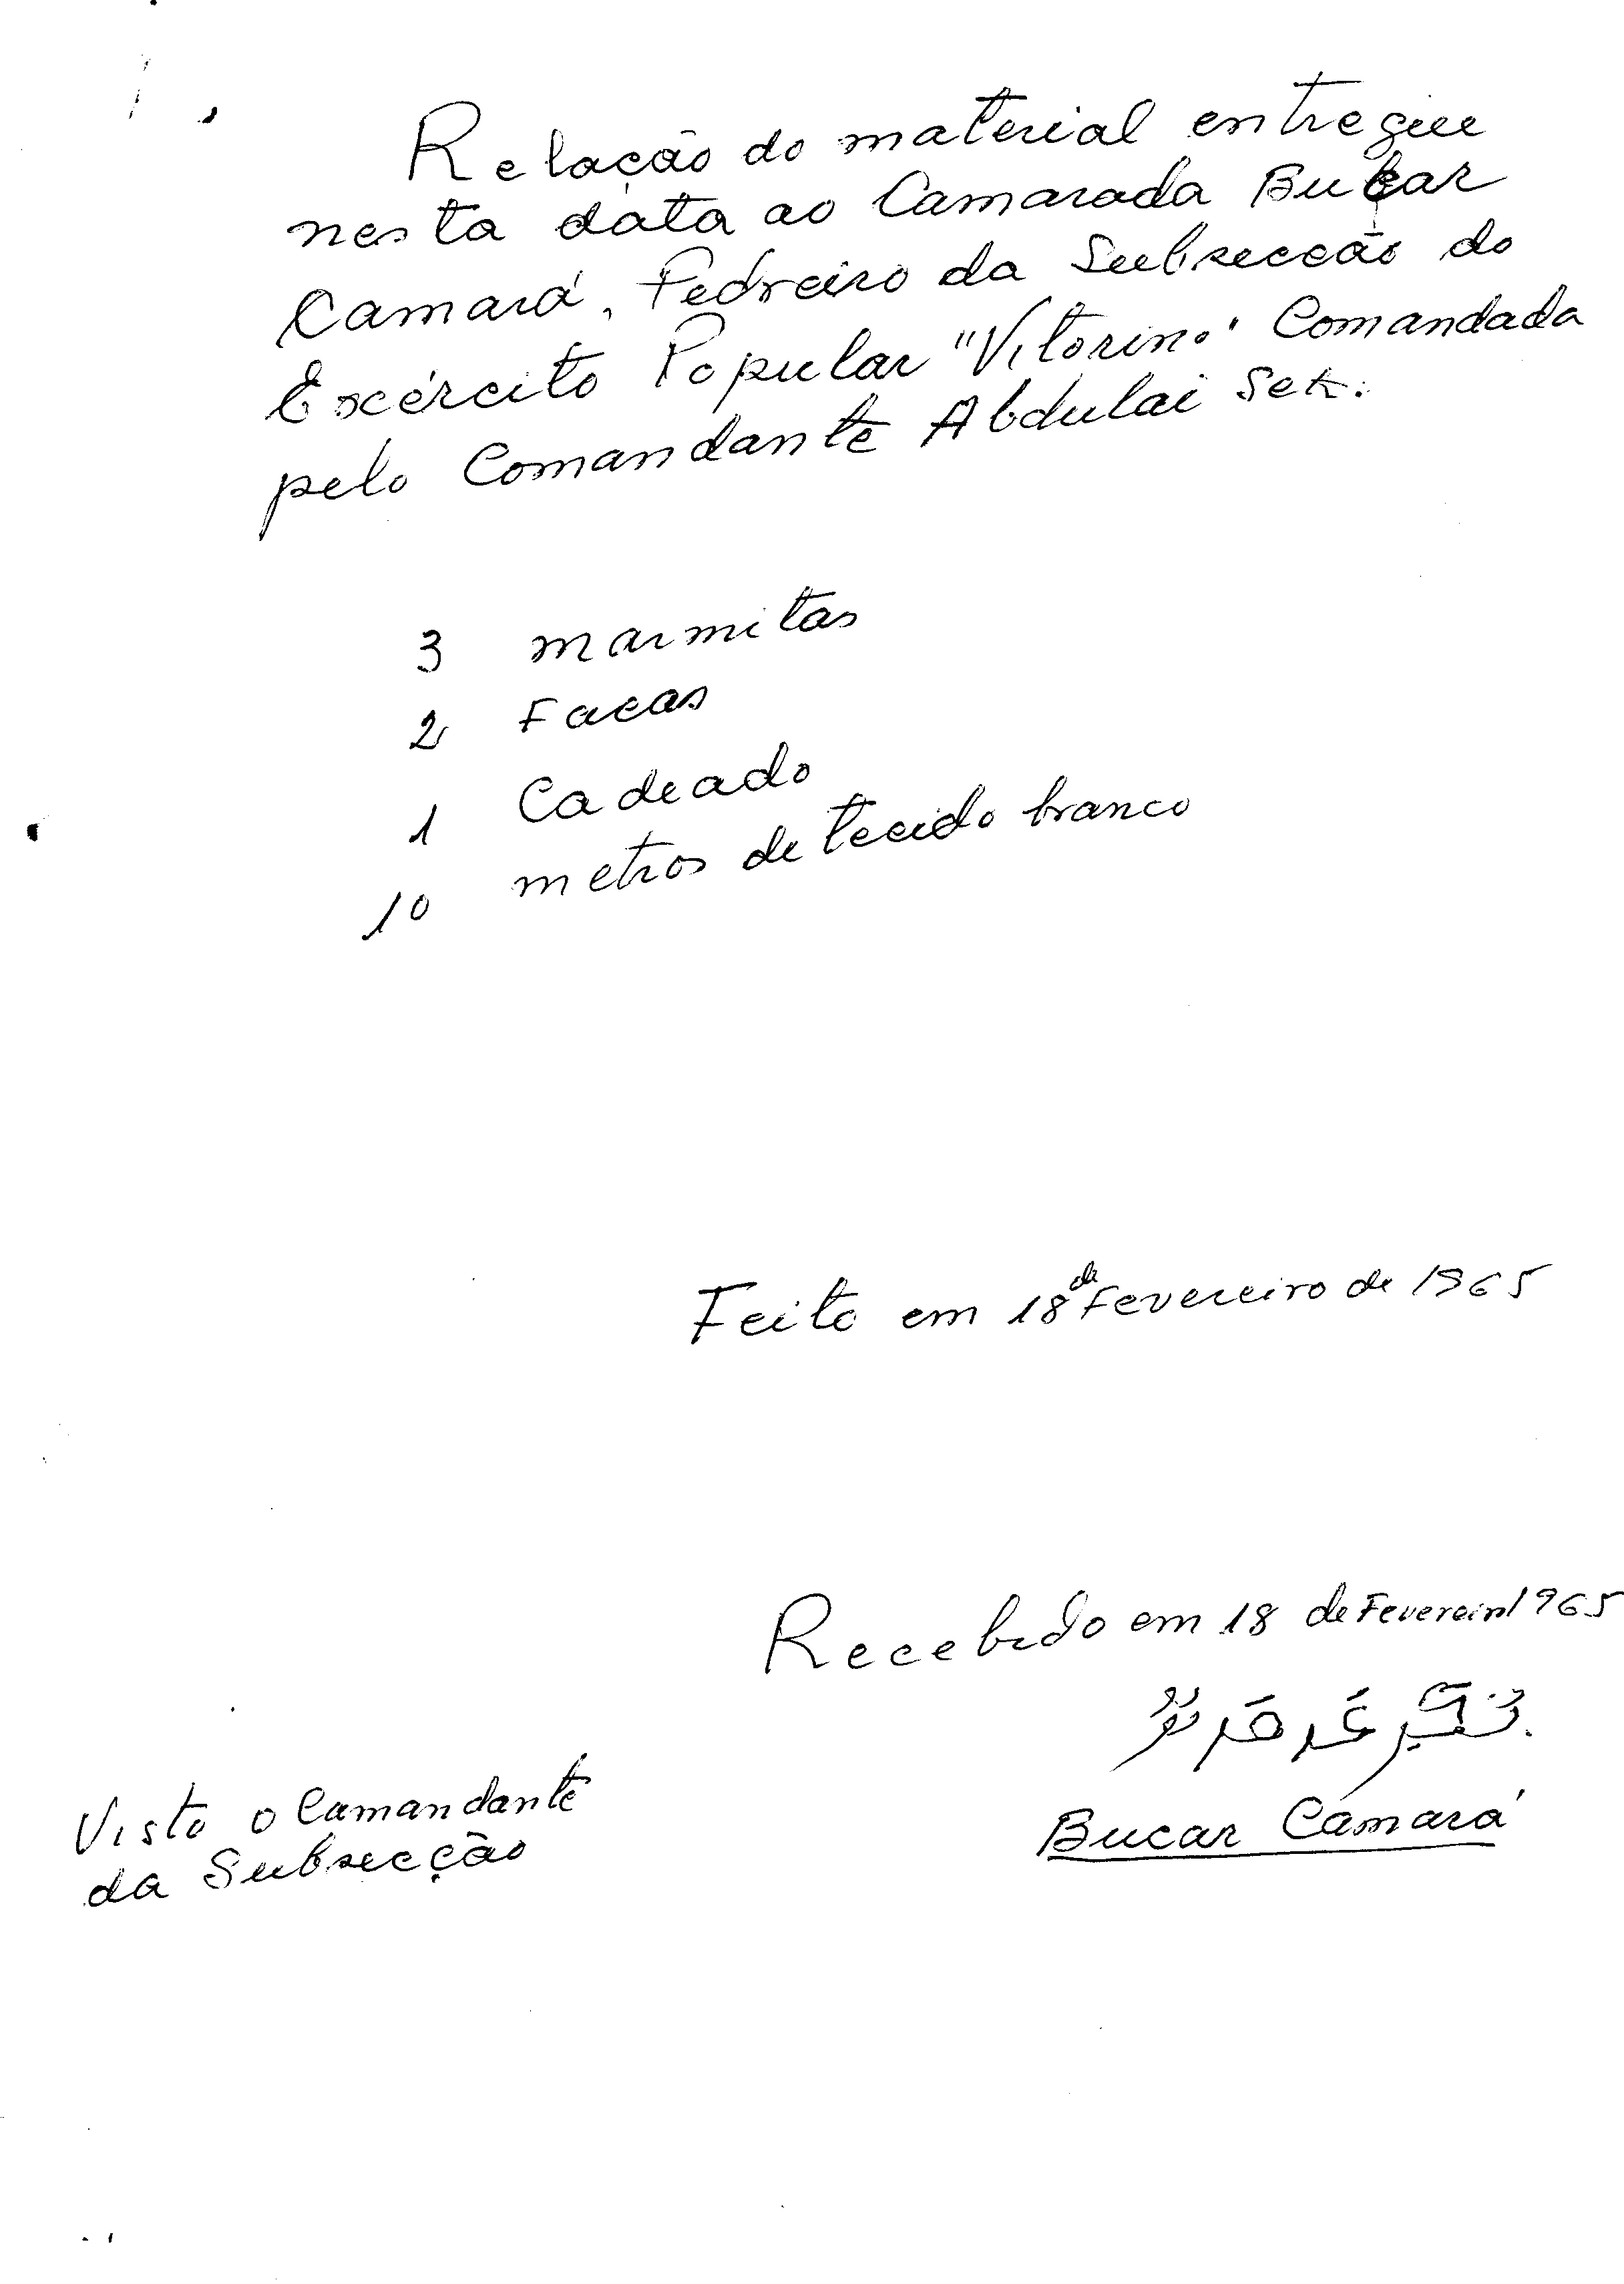 Relação do material entregue
nesta data ao Camarada Bucar
Camará, Pedreiro da Subsecção do
Exército Popular "Vitorino" Comandada
pelo Comandante Abdulai
3 marmitas
2 Facas
1 Cadeado
10 metros de tecido branco
Feito em 18 de Fevereiro de 1965
Recebido em 18 de Fevereiro 1965
Bucar Camará
Visto o Camandante
da Subsecção